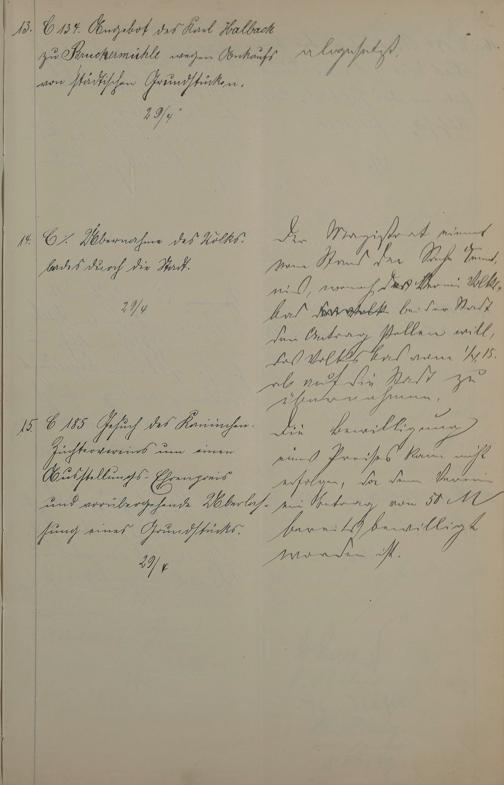 13. C 134. Angebot des Karl Halbach
zu Bruckermühle wegen Ankaufs
von städtischen Grundstücken.
29/4
abgesetzt.
14. C/. Übernahme des Volks-
bades durch die Stadt.
29/4
Der Magistrat nimmt
vom Stand der Sache Kennt-
nis, wonach der Verein Volks-
bad bei der Stadt
den Antrag stellen will,
das Volksbad vom 1/4 15.
ab auf die Stadt zu
übernehmen.
15. C 185 Gesuch des Kaninchen-
Züchtervereins um einen
Ausstellungs-Ehrenpreis
und vorübergehende Überlas-
sung eines Grundstücks.
29/4
Die Bewilligung
eines Preises kann nicht
erfolgen, da dem Verein
ein Betrag von 50 M
bereits bewilligt
worden ist.